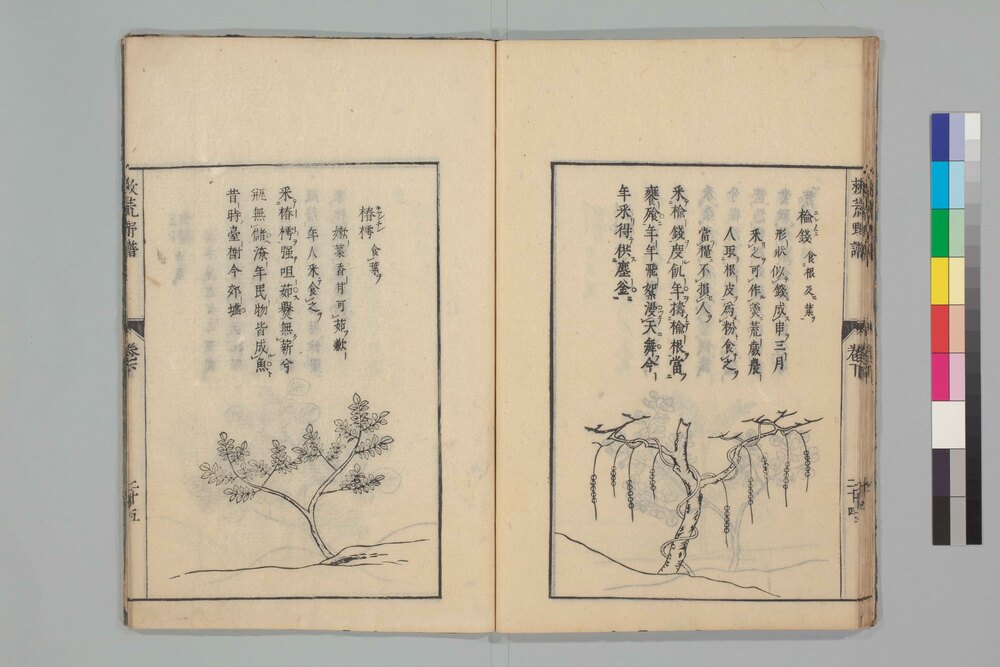 榆錢 食根及葉
形狀似錢成串三月
采之可作羹荒歲農
人取根皮爲粉食之
當糧不損人
釆榆錢度飢年擣榆根當
饔飧年年飛絮漫天舞今
年釆得供塵釜
救荒野譜
卷下
二十四
椿樗 食葉
嫩葉香甘可茹歉
年人釆食之
釆椿樗强咀茹爨無薪兮
瓶無儲潦年民物皆成魚
昔時臺榭今郊墟
救荒野譜
卷下
二十五